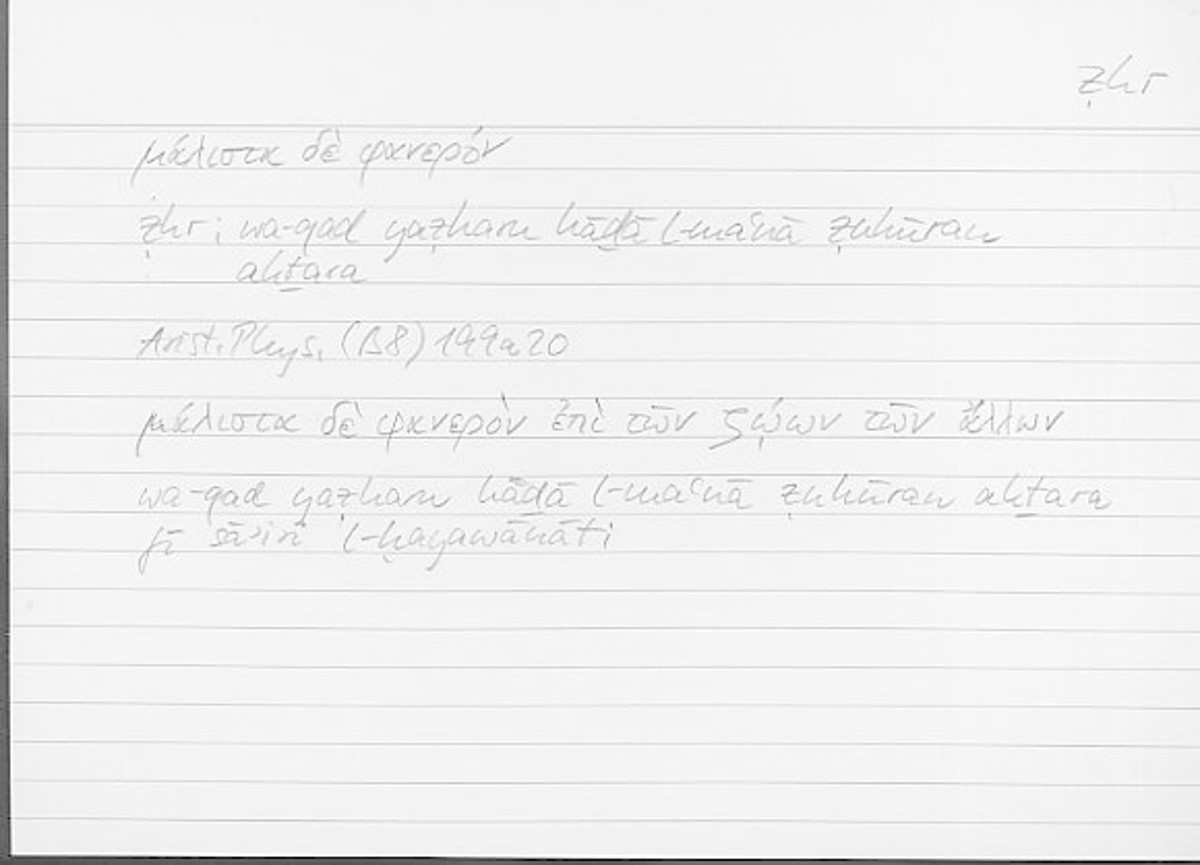 ẓhr
μάλιστα δὲ φανερόν
ẓhr; wa-qad yaẓharu hāḏā l-maʿnā ẓuhūran
akṯara
Arist. Phys. (B8) 199a20
μάλιστα δὲ φανερὸν ἐπὶ τῶν ζῴων τῶν ἄλλων
wa-qad yaẓharu hāḏā l-maʿnā ẓuhūran akṯara
fī sāʾiri l-ḥayawānāti